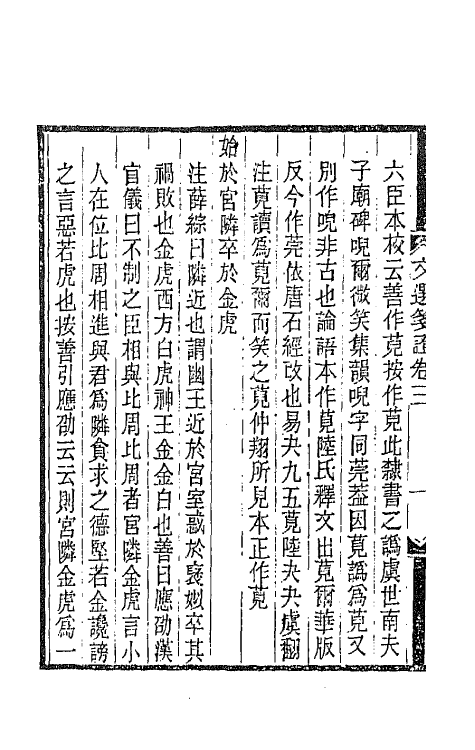 文選箋證卷三
一
六臣本校云善作莧按作莧此隸書之譌虞世南夫
子廟碑哯爾微笑集韻哯字同莞葢因莧譌為莧又
別作哯非古也論語本作莧陸氏釋文出莧爾華版
反今作莞依唐石經改也易夬九五莧陸夬夬虞翻
注莧讀為莧爾而笑之莧仲翔所見本正作莧
始於宮隣卒於金虎
注薛綜曰隣近也謂幽王近於宮室惑於褒姒卒其
禍敗也金虎西方白虎神王金金白也善曰應劭漢
官儀曰不制之臣相與比周比周者宮隣金虎言小
人在位比周相進與君為隣貪求之德堅若金讒謗
之言惡若虎也按善引應劭云云則宮隣金虎為一